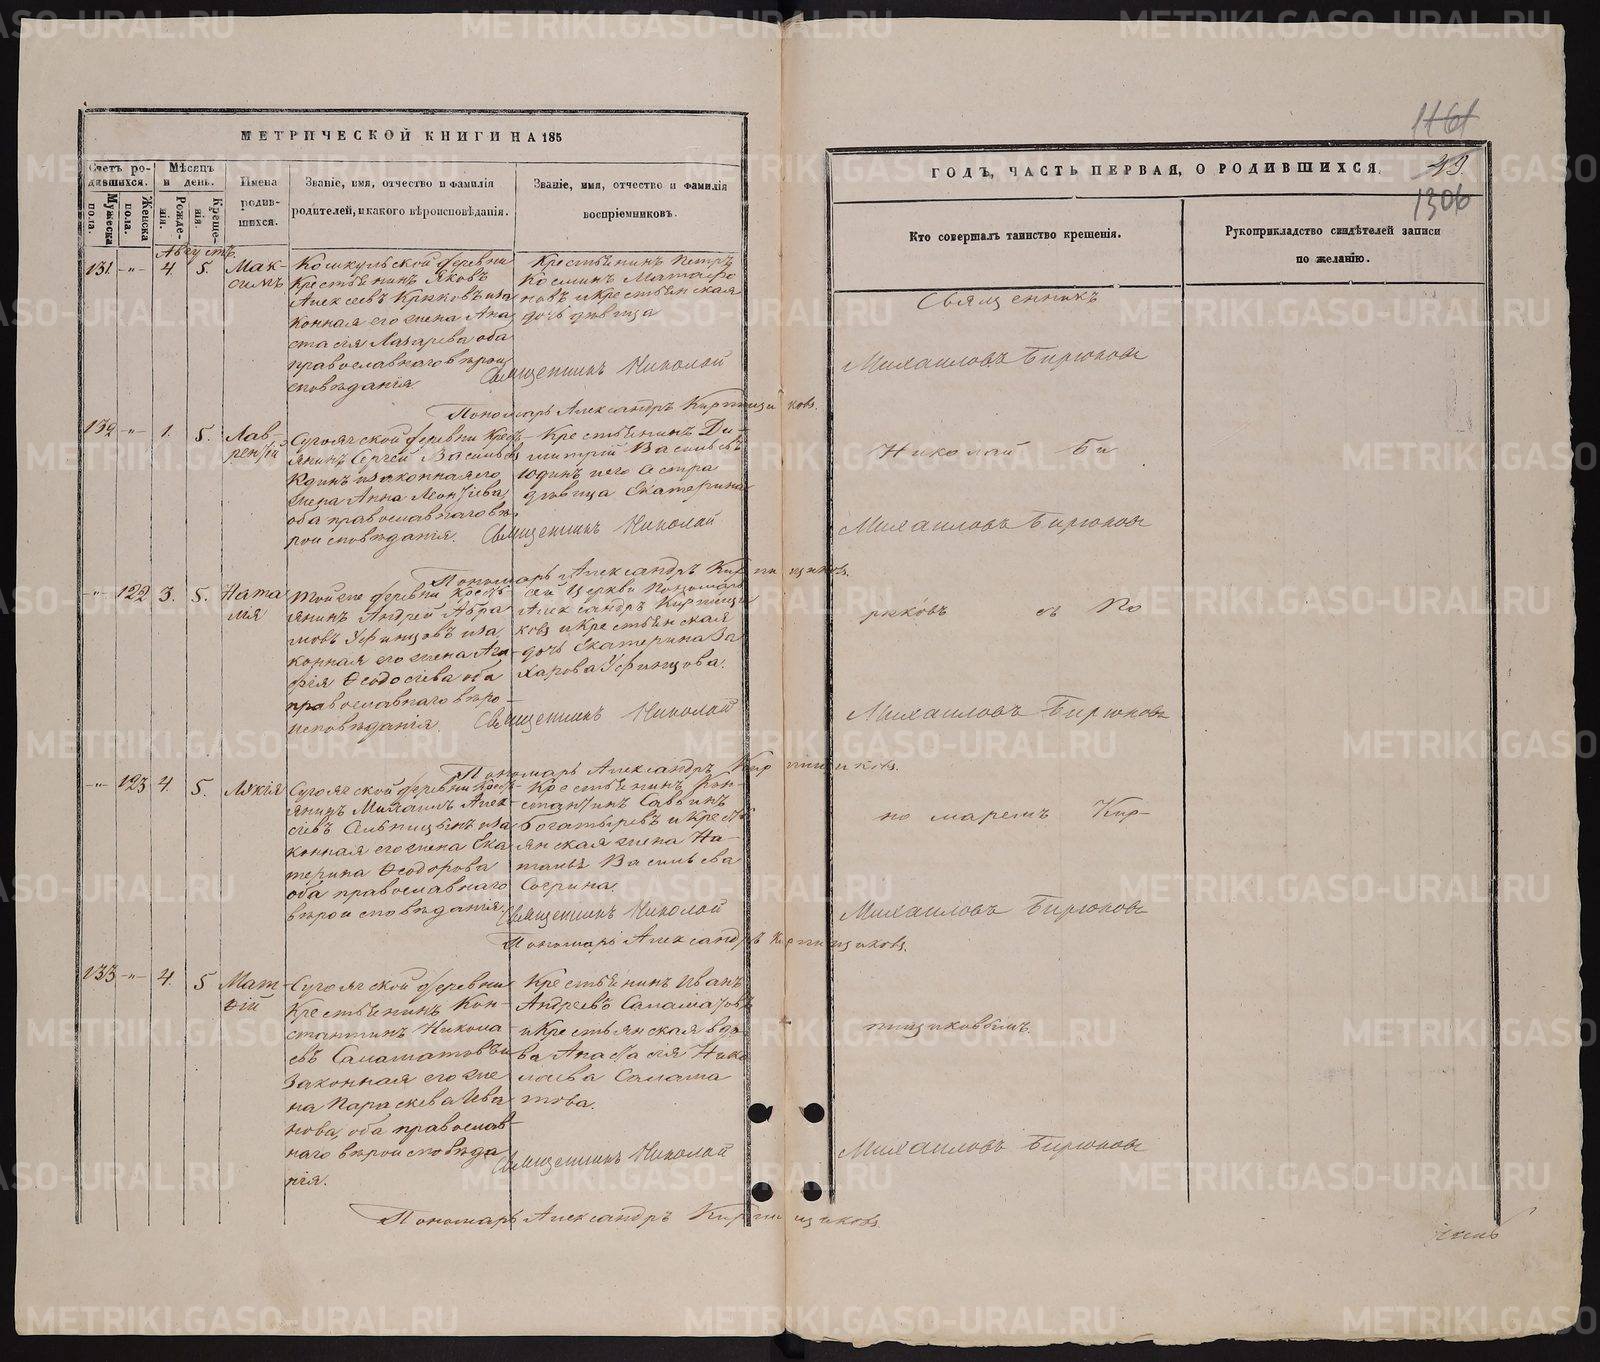 МЕТРИЧЕСКОЙ КНИГИ НА 185
Счетъ ро-
дившихся.
Мужеска
пола.
Женска
пола.
Мѣсяцъ
и день.
Рожде-
нія.
Креще-
нія.
Имена
родив-
шихся.
Званіе, имя, отчество и фамилія
родителей, и какого вѣроисповѣданія.
Званіе, имя, отчество и фамилія
воспріемниковъ.
Августъ
131. -"- 4. 5. Мак-
симъ
Кошкульской деревни
Крестьянинъ Яковъ
Алексѣевъ Крюковъ и за
конная его жена Ана
стасія Лазарева оба
православнаго вѣрои
сповѣданія
Крестьянинъ Петръ
Косминъ Матафо
новъ и крестьянская
дочь дѣвица
Священникъ Николай
Пономарь Александръ Кирпищиковъ.
132 -"- 1. 5. Лав-
рентій
Сугоякской деревни Крест-
янинъ Сергей Васильев
Юдинъ и законная его
жена Анна Леонтіева,
оба православнаго вѣ-
роисповѣданія.
Крестьянинъ Ди-
митрій Васильевъ
Юдинъ и его сестра
дѣвица Екатерина
Священникъ Николай
Пономарь Александръ Кирпищиковъ.
-"- 122 3. 5. Ната
лія
Той же деревни Крест-
янинъ Андрей Абра
мовъ Уфинцовъ и за
конная его жена Ага-
фія Ѳеодосіева оба
православнаго вѣро-
исповѣданія.
сей Церкви Пономарь
Александръ Кирпищи
ковъ и Крестьянская
дочь Екатерина За
харова Уфинцова.
Священникъ Николай
Пономарь Александръ Кирпищиковъ.
-"- 123 4. 5.
Сугоякской деревни Крест-
янинъ Михаилъ Алек-
сѣевъ и за
конная его жена Ека
терина Ѳеодорова
оба православнаго
вѣроисповѣданія.
Крестьянинъ Кон-
стантинъ Саввинъ
Богатыревъ и Крест-
янская жена На-
талья Васильева
Священникъ Николай
Пономарь Александръ Кирпищиковъ.
133 -"- 4. 5 Мат-
ѳій
Сугоякской деревни
Крестьянинъ Кон-
стантинъ Никола
евъ Саламатовъ и
законная его же
на Параскева Ива
нова, оба православ-
наго вѣроисповѣда
нія.
Крестьянинъ Иванъ
Андреевъ Саламатовъ
и Крестьянская вдо
ва Анастасія Нико
лаева Салама
това.
Священникъ Николай
Пономарь Александръ Кирпищиковъ.
1161
49
1306
ГОДЪ, ЧАСТЬ ПЕРВАЯ, О РОДИВШИХСЯ.
Кто совершалъ таинство крещенія.
Рукоприкладство свидѣтелей записи
по желанію.
Священникъ
Михаиловъ Бирюковъ
Николай Би
Михаиловъ Бирюковъ
рюковъ съ По
Михаиловъ Бирюковъ
номаремъ Кир-
Михаиловъ Бирюковъ
пищиковымъ.
Михаиловъ Бирюковъ
METRIKI.GASO-URAL.RU